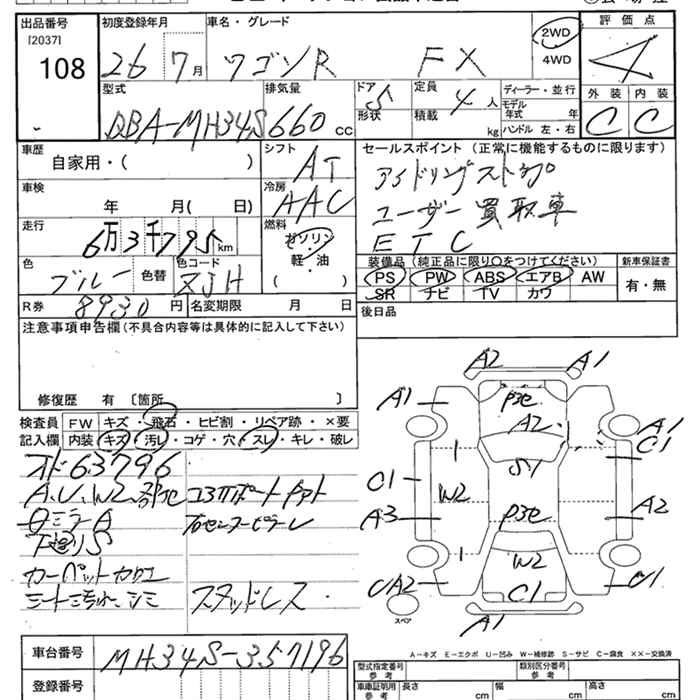 出品番号 初度登録年月 車名・グレード 評価点
[2037]
108 26 7月 ワゴンR FX 2WD 4WD 4
型式 排気量 ドア 5 定員 4人 ディーラー・並行 外装 内装
DBA-MH34S 660cc 形状 積載 kg モデル年式 年 C C
ハンドル 左・右
車歴 自家用・( ) シフト AT セールスポイント (正常に機能するものに限ります)
車検 年 月( 日) 冷房 AAC アイドリングストップ
ユーザー買取車
走行 6万3千795km 燃料 ガソリン・軽・油 ETC
色 ブルー 色替 色コード ZJH 装備品(純正品に限り○をつけてください) 新車保証書
PS PW ABS エアB AW 有・無
SR ナビ TV カワ
R券 8930円 名変期限 月 日 後日品
注意事項申告欄(不具合内容等は具体的に記入して下さい)
修復歴 有 〔箇所 〕
検査員 FW キズ・飛石・ヒビ割・リペア跡・×要
記入欄 内装 キズ・汚レ・コゲ・穴・スレ・キレ・破レ
オド63796
A.U.W2.
ミラーA
下廻りS
カーペット
シート汚れ、シミ スタッドレス
A2 A1
A1 P3e A1
A2 C1
S1
C1 W2
A3 P3e A2
W2
UA2 C1 U1
スペア A1
A-キズ E-エクボ U-凹み W-補修跡 S-サビ C-腐食 ××-交換済
車台番号 MH34S-357196
型式指定番号 参考 類別区分番号 参考
登録番号 車庫証明用 参考 長さ cm 幅 cm 高さ cm